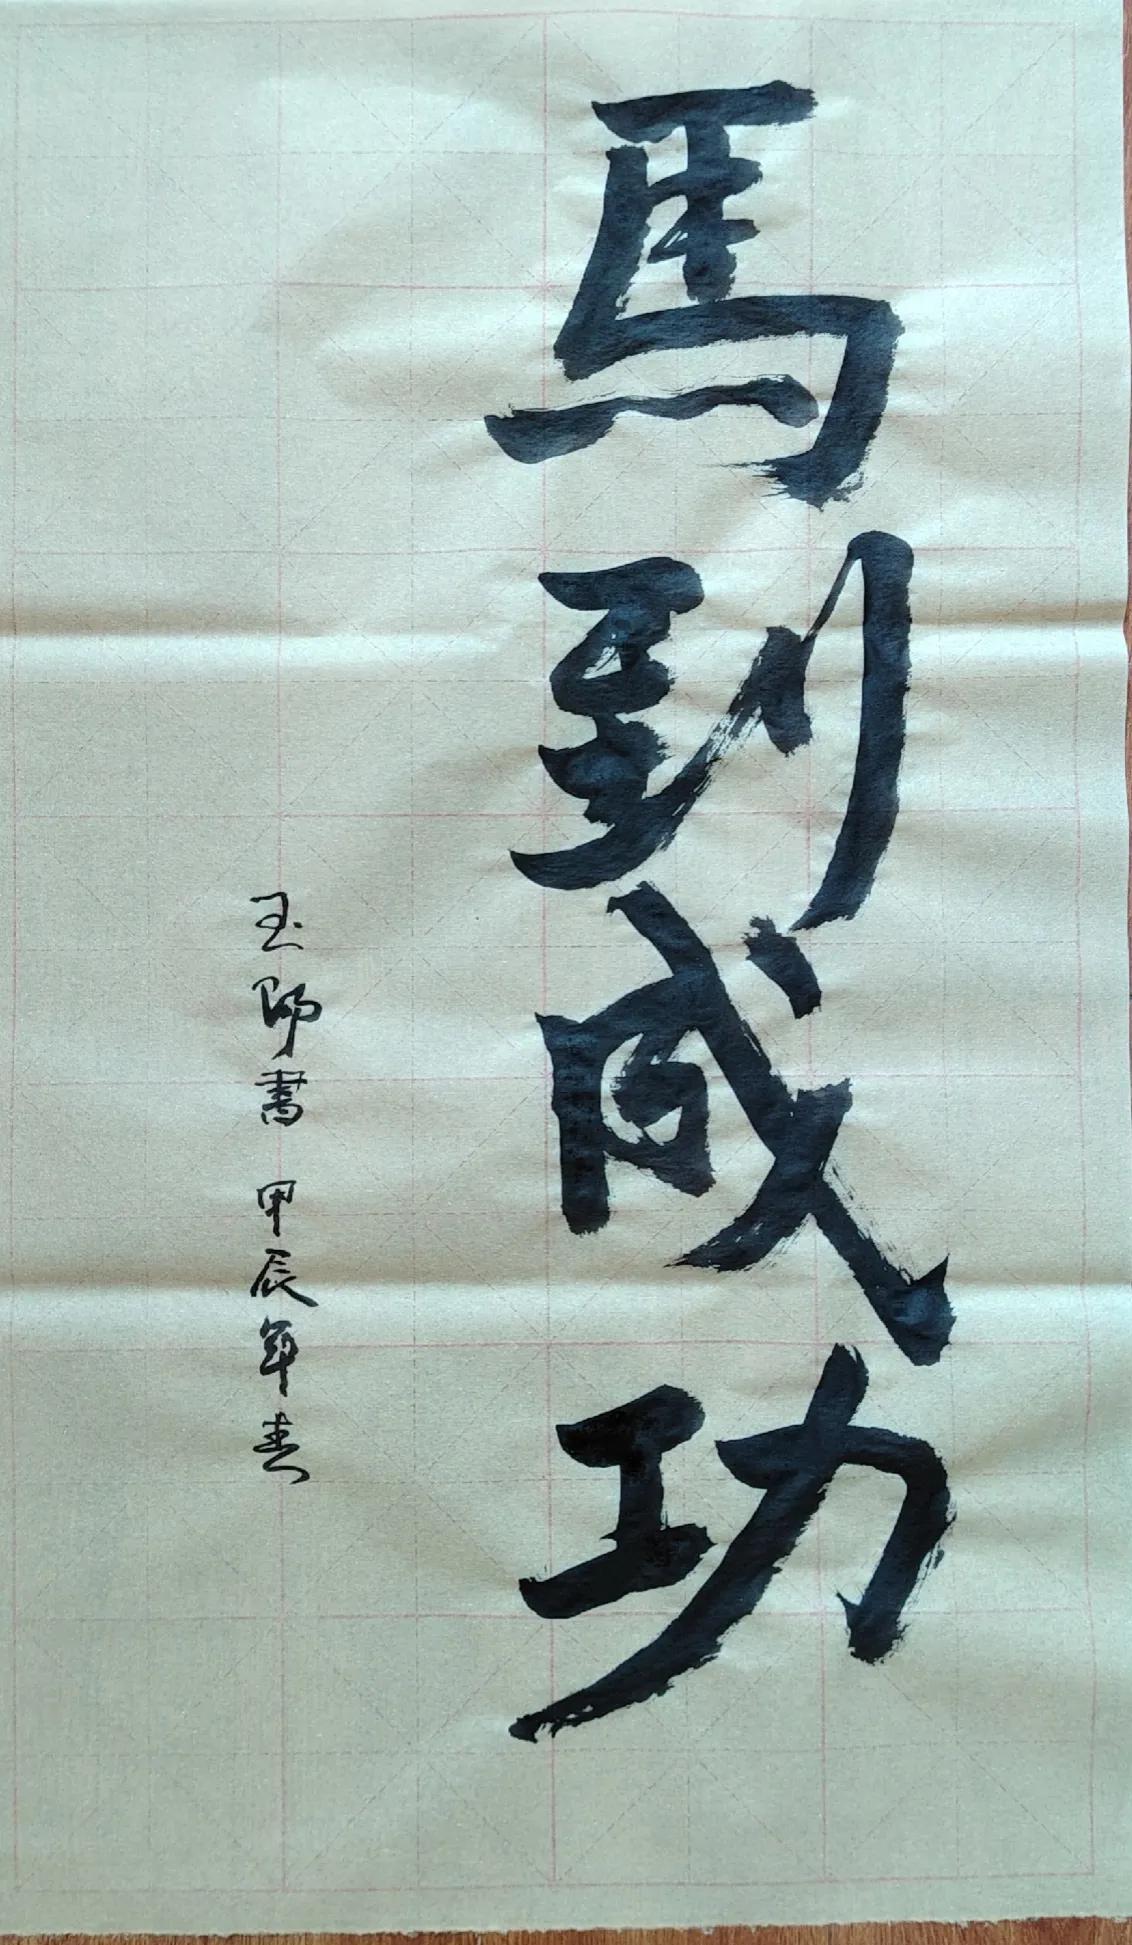 馬到成功
玉师書 甲辰年春